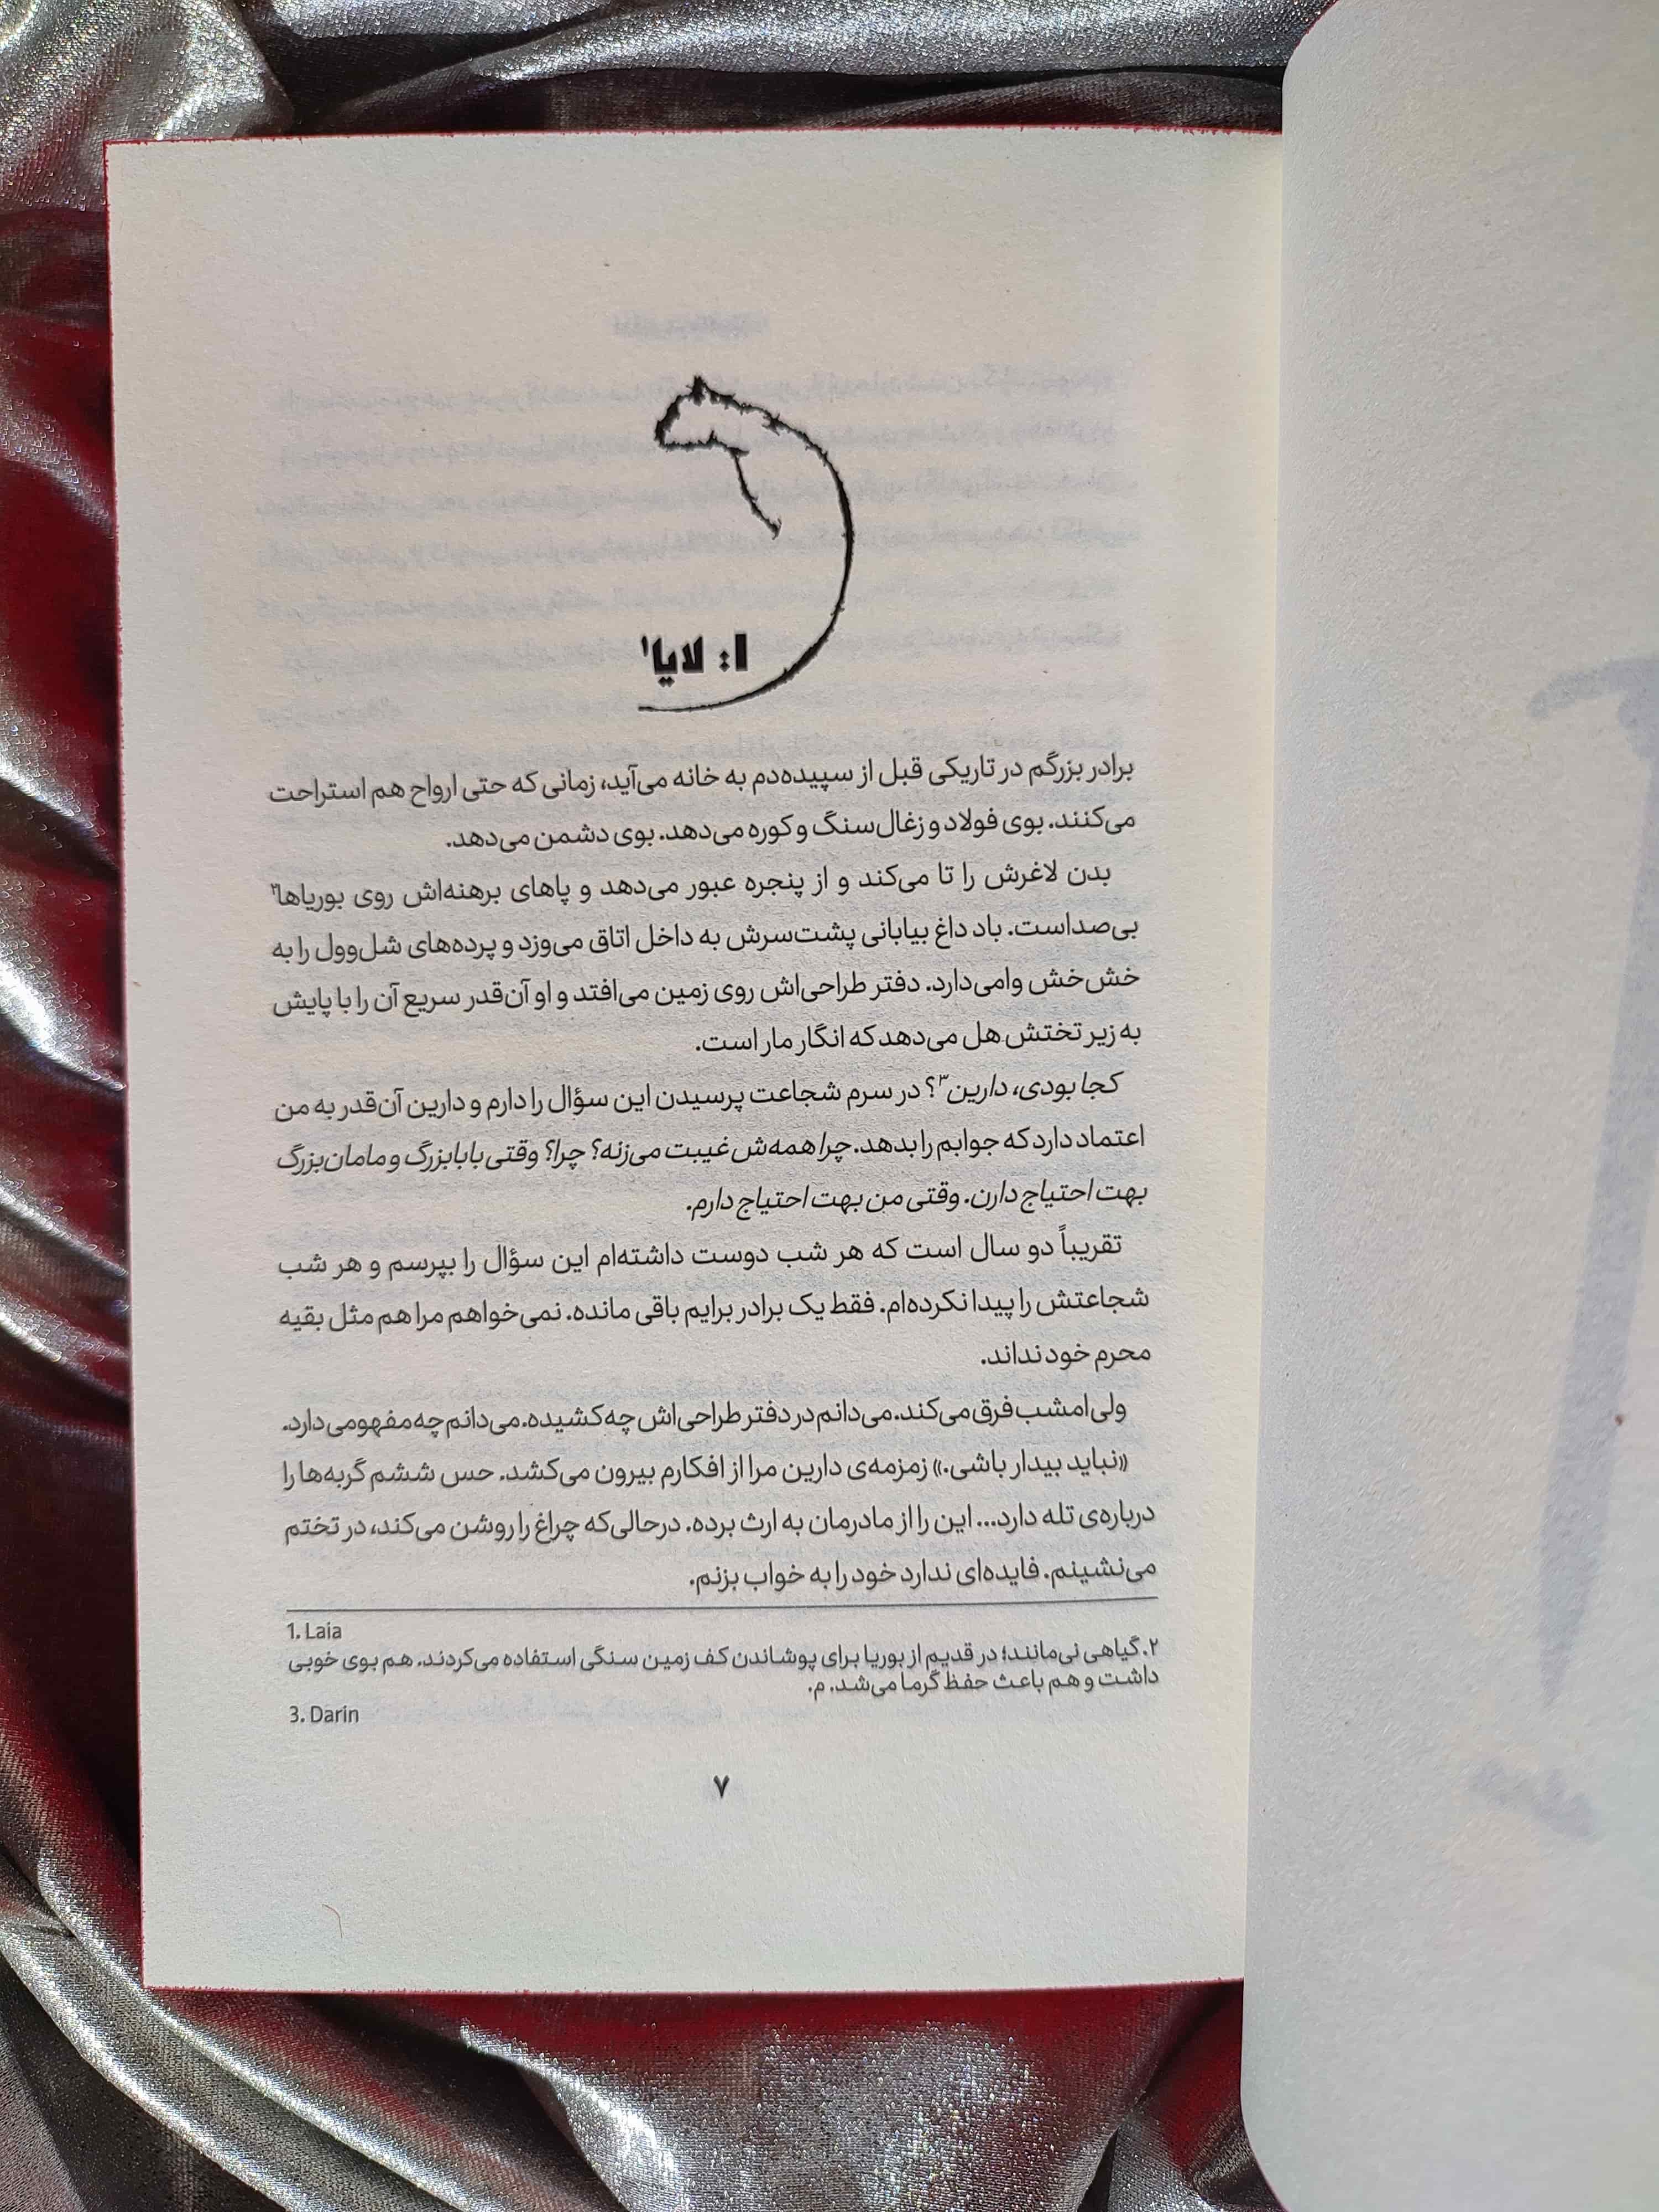 ۱: لایا۱
برادر بزرگم در تاریکی قبل از سپیده‌دم به خانه می‌آید، زمانی که حتی ارواح هم استراحت
می‌کنند. بوی فولاد و زغال‌سنگ و کوره می‌دهد. بوی دشمن می‌دهد.
بدن لاغرش را تا می‌کند و از پنجره عبور می‌دهد و پاهای برهنه‌اش روی بوریاها۲
بی‌صداست. باد داغ بیابانی پشت‌سرش به داخل اتاق می‌وزد و پرده‌های شل‌وول را به
خش‌خش وامی‌دارد. دفتر طراحی‌اش روی زمین می‌افتد و او آن‌قدر سریع آن را با پایش
به زیر تختش هل می‌دهد که انگار مار است.
کجا بودی، دارین۳؟ در سرم شجاعت پرسیدن این سؤال را دارم و دارین آن‌قدر به من
اعتماد دارد که جوابم را بدهد. چرا همه‌ش غیبت می‌زنه؟ چرا؟ وقتی بابابزرگ و مامان‌بزرگ
بهت احتیاج دارن. وقتی من بهت احتیاج دارم.
تقریباً دو سال است که هر شب دوست داشته‌ام این سؤال را بپرسم و هر شب
شجاعتش را پیدا نکرده‌ام. فقط یک برادر برایم باقی مانده. نمی‌خواهم مرا هم مثل بقیه
محرم خود نداند.
ولی امشب فرق می‌کند. می‌دانم در دفتر طراحی‌اش چه کشیده. می‌دانم چه مفهومی دارد.
«نباید بیدار باشی.» زمزمه‌ی دارین مرا از افکارم بیرون می‌کشد. حس ششم گربه‌ها را
درباره‌ی تله دارد... این را از مادرمان به ارث برده. درحالی‌که چراغ را روشن می‌کند، در تختم
می‌نشینم. فایده‌ای ندارد خود را به خواب بزنم.
1. Laia
۲. گیاهی نی‌مانند؛ در قدیم از بوریا برای پوشاندن کف زمین سنگی استفاده می‌کردند. هم بوی خوبی
داشت و هم باعث حفظ گرما می‌شد. م.
3. Darin
۷